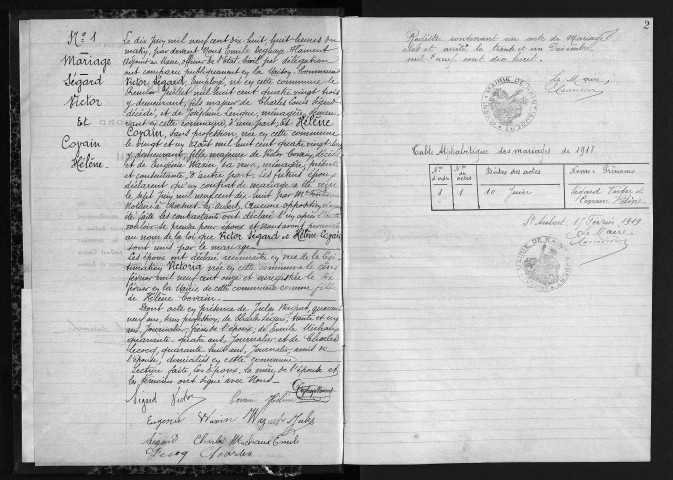 N° 1
Mariage
Ségard
Victor
Et
Covain
Hélène.
Le dix Juin mil neuf cent dix huit, huit heures du
matin, par devant Nous Emile
Adjoint au Maire, officier de l'état civil par délégation
ont comparu publiquement en la Maison Commune
Victor Ségard, Employé, né en cette commune le
Juillet mil huit cent quatre vingt trois
y demeurant, fils majeur de Charles Louis Ségard
décédé, et de Joséphine ménagère, demeu-
rant en cette commune, d'une part; Et Hélène
Covain, sans profession, née en cette commune
le vingt et un Août mil huit cent quatre vingt
y demeurant, fille majeure de Victor Covain, décédé
et de Eugénie Wavin, sa veuve, ménagère, présente
et consentante, d'autre part. Les futurs époux
déclarent qu'un contrat de mariage a été reçu
le sept Juin mil neuf cent dix-huit par Me
Notaire à Aucune opposition n'ayant
été faite les contractants ont déclaré l'un après l'autre
vouloir se prendre pour époux et nous avons prononcé
au nom de la loi que Victor Ségard et Hélène Covain
sont unis par le mariage.
Les époux ont déclaré reconnaître en vue de la légi-
timation Victoria née en cette commune le cinq
février mil neuf cent onze et enregistrée le
février en la Mairie de cette commune comme fille
de Hélène Covain.
Dont acte en présence de Jules Wagnet, quarante
neuf ans, sans profession; de Charles Ségard, trente et un
ans, Journalier, frère de l'époux; de Emile Michaux
quarante quatre ans, Journalier et de Charles
Lecocq, quarante huit ans, Journalier, amis de
l'épouse, domiciliés en cette commune.
Lecture faite, les époux, la mère de l'épouse et
les témoins ont signé avec Nous.
Ségard Victor Covain Hélène
Eugénie Wavin Wagnet Jules
Ségard Charles Michaux Emile
Lecocq Charles
2
Registre contenant un acte de Mariage
Clos et arrêté le trente et un Décembre
mil neuf cent dix huit.
Le Maire
MAIRIE DE SAINT-AUBERT
Table Alphabétique des mariages de 1918
Nos d'ordre Nos des actes Dates des actes Noms - Prénoms
1 1 10 Juin Ségard Victor et
Covain Hélène
St Aubert 15 Février 1919
Le Maire
MAIRIE DE SAINT-AUBERT